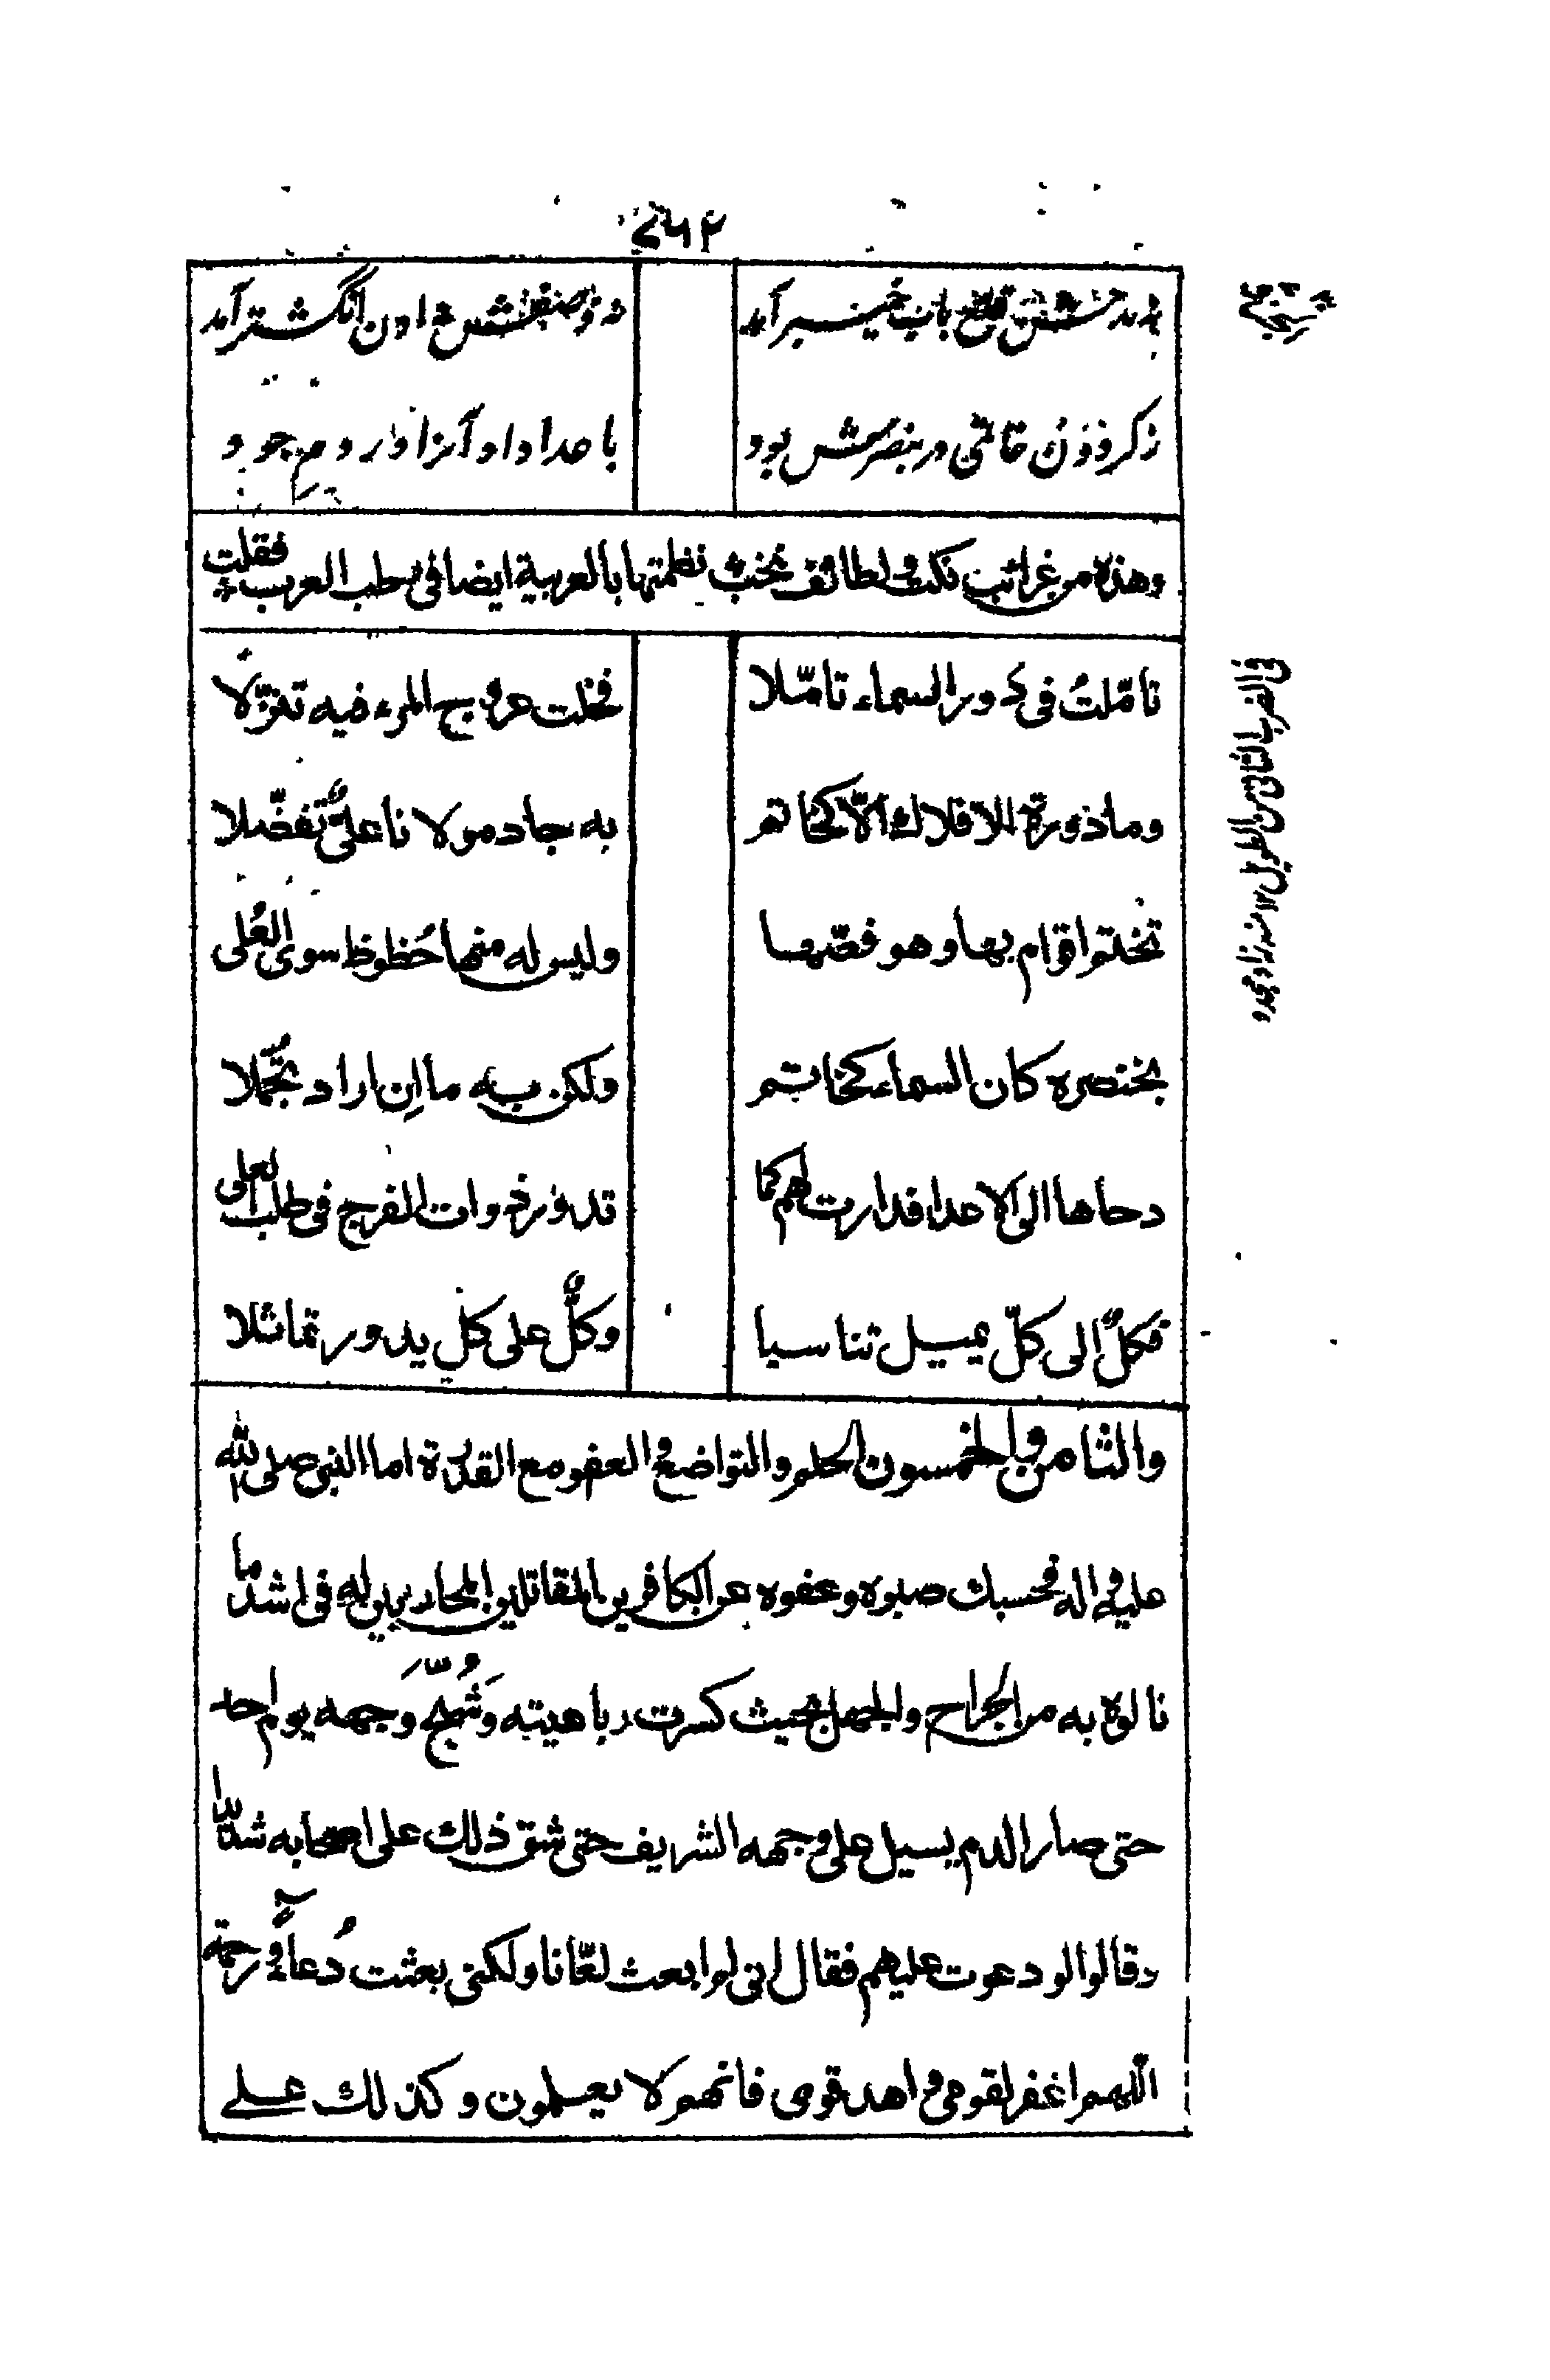 باب خیبر آمد
انگشتر آمد
ز گردون خاتمی در بنصرش بود
با عدا داد آنرا از ره جود
وهذه من غرائب نكت ولطائف بخت نظمتها بالعربية ايضا فى مطلب العرب فقلت
تامّلتُ فى دور السماء تامّلا
فخلت عروج المرء فيه تنزّلا
وما دورة الافلاك الّا كخاتم
به جاد مولانا علىٌّ تفضّلا
تختم اقوام بها وهو فصّها
وليس له منها حُظوظ سوى العُلى
بخنصره كان السماء كخاتم
ولكن به ما اِن اراد تجمُّلا
دحاها الى الاعدا فدارت لهم كما
تدور ذوات الفرج فى طلب العلى
فكلٌّ الى كلّ يميل تناسبا
وكلٌّ على كل يدور تماثلا
والثامن والخمسون الحلم والتواضع والعفو مع القدرة اما النبى صلى الله
عليه واله فحسبك صبره وعفوه عن الكافرين المقاتلين المحاربين له فى اشد ما
نالوه به من الجراح والجهل بحيث كسرت رباعيته وَشُجَّ وَجهه يوم احد
حتى صار الدم يسيل على وجهه الشريف حتى شق ذلك على اصحابه شديدا
وقالوا لو دعوت عليهم فقال انى لم ابعث لعّانا ولكنى بعثت دُعاءً ورحمة
اللهم اغفر لقومى واهد قومى فانهم لا يعلمون وكذلك على
فى الضرب الثانى من الطويل ١٢ منه زاد مجده